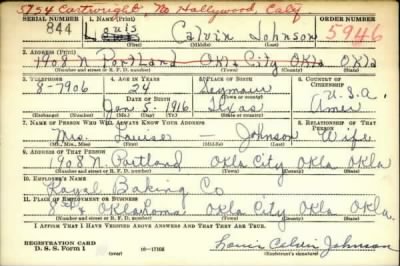 734 Cartwright, No Hollywood, Calif
SERIAL NUMBER 1. NAME (Print) ORDER NUMBER
844 Louis Calvin Johnson 5946
(First) (Middle) (Last)
2. ADDRESS (Print)
1908 N Portland Okla City Okla Okla
(Number and street or R. F. D. number) (Town) (County) (State)
3. TELEPHONE 4. AGE IN YEARS 5. PLACE OF BIRTH 6. COUNTRY OF CITIZENSHIP
8-7906 24 Seymour U.S.A.
DATE OF BIRTH (Town or county)
Jan 5, 1916 Texas Amer
(Exchange) (Number) (Mo.) (Day) (Yr.) (State or country)
7. NAME OF PERSON WHO WILL ALWAYS KNOW YOUR ADDRESS 8. RELATIONSHIP OF THAT PERSON
Mrs. Louise — Johnson Wife
(Mr., Mrs., Miss) (First) (Middle) (Last)
9. ADDRESS OF THAT PERSON
1908 N. Portland Okla City Okla Okla
(Number and street or R. F. D. number) (Town) (County) (State)
10. EMPLOYER'S NAME
Royal Baking Co
11. PLACE OF EMPLOYMENT OR BUSINESS
8th & Oklahoma Okla City Okla Okla.
(Number and street or R. F. D. number) (Town) (County) (State)
I AFFIRM THAT I HAVE VERIFIED ABOVE ANSWERS AND THAT THEY ARE TRUE.
REGISTRATION CARD
D. S. S. Form 1 16—17105 Louis Calvin Johnson
(Registrant's signature)